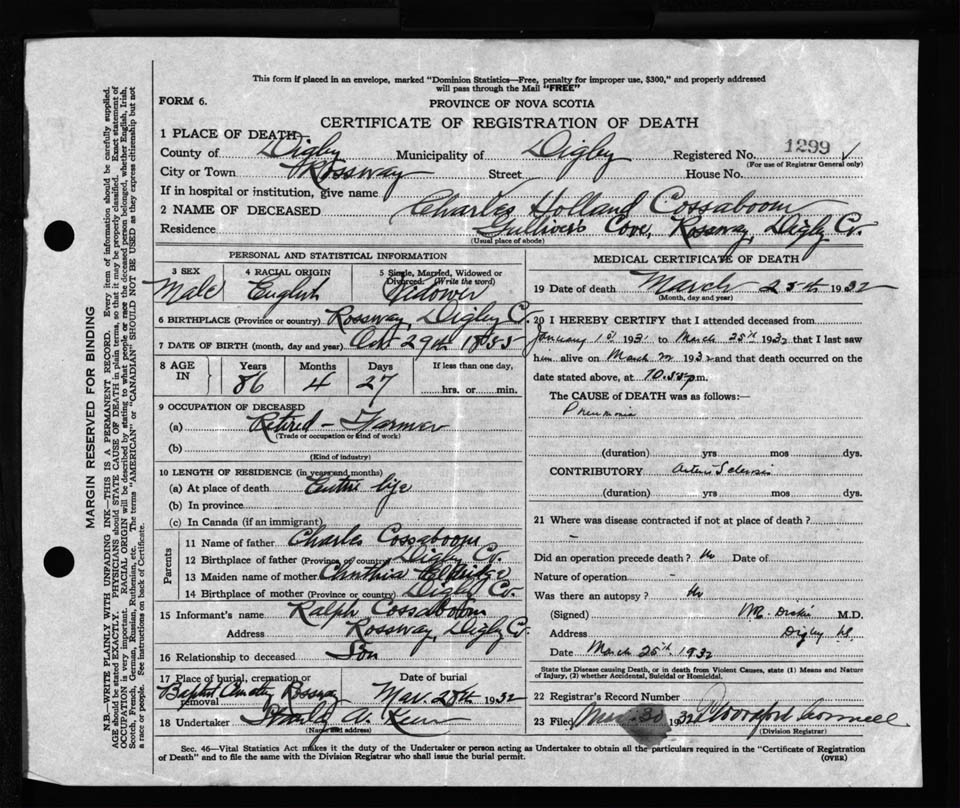 This form if placed in an envelope, marked "Dominion Statistics—Free, penalty for improper use, $300," and properly addressed
will pass through the Mail "FREE"
FORM 6.
PROVINCE OF NOVA SCOTIA
CERTIFICATE OF REGISTRATION OF DEATH
1 PLACE OF DEATH
County of Digby Municipality of Digby Registered No. 1299
(For use of Registrar General only)
City or Town Rossway Street House No.
If in hospital or institution, give name
2 NAME OF DECEASED Charles Holland Cossaboom
Residence Gullivers Cove, Rossway, Digby Co.
(Usual place of abode)
PERSONAL AND STATISTICAL INFORMATION
3 SEX 4 RACIAL ORIGIN 5 Single, Married, Widowed or
Divorced (Write the word)
Male English Widower
6 BIRTHPLACE (Province or country) Rossway, Digby Co.
7 DATE OF BIRTH (month, day and year) Oct 29th
8 AGE IN Years Months Days If less than one day,
86 4 27 hrs. or min.
9 OCCUPATION OF DECEASED
(a) Retired - Farmer
(Trade or occupation or kind of work)
(b)
(Kind of industry)
10 LENGTH OF RESIDENCE (in years and months)
(a) At place of death Entire life
(b) In province
(c) In Canada (if an immigrant)
Parents
11 Name of father Charles Cossaboom
12 Birthplace of father (Province or country) Digby Co.
13 Maiden name of mother Cynthia Eldridge
14 Birthplace of mother (Province or country) Digby Co.
15 Informant's name Ralph Cossaboom
Address Rossway, Digby Co
16 Relationship to deceased Son
17 Place of burial, cremation or Date of burial
removal Baptist Rossway Mar. 28th 1932
18 Undertaker Stanley A.
(Name and address)
MEDICAL CERTIFICATE OF DEATH
19 Date of death March 25th 1932
(Month, day and year)
20 I HEREBY CERTIFY that I attended deceased from
January 1st 193 to March 25th 1932 that I last saw
him alive on March 1932 and that death occurred on
the date stated above, at 10.55 p.m.
The CAUSE of DEATH was as follows:—
Pneumonia
(duration) yrs mos. dys.
CONTRIBUTORY Arterio Sclerosis
(duration) yrs mos dys.
21 Where was disease contracted if not at place of death?
-
Did an operation precede death? No Date of
Nature of operation -
Was there an autopsy? No
(Signed) M.D.
Address Digby NS
Date March 26th 1932
State the Disease causing Death, or in death from Violent Causes, state (1) Means and Nature
of Injury, (2) whether Accidental, Suicidal or Homicidal.
22 Registrar's Record Number
23 Filed Mar. 30 1932
(Division Registrar)
Sec. 46—Vital Statistics Act makes it the duty of the Undertaker or person acting as Undertaker to obtain all the particulars required in the "Certificate of Registration
of Death" and to file the same with the Division Registrar who shall issue the burial permit. (OVER)
MARGIN RESERVED FOR BINDING
N.B.—WRITE PLAINLY WITH UNFADING INK—THIS IS A PERMANENT RECORD. Every item of information should be carefully supplied.
AGE should be stated EXACTLY. PHYSICIANS should STATE CAUSE OF DEATH in plain terms, so that it may be properly classified. Exact statement of
OCCUPATION is very important. RACIAL ORIGIN will be described by stating to what people or race the deceased person belonged, whether English, Irish,
Scotch, French, German, Russian, Ruthenian, etc. The terms "AMERICAN" or "CANADIAN" SHOULD NOT BE USED as they express citizenship but not
a race or people. See instructions on back of Certificate.